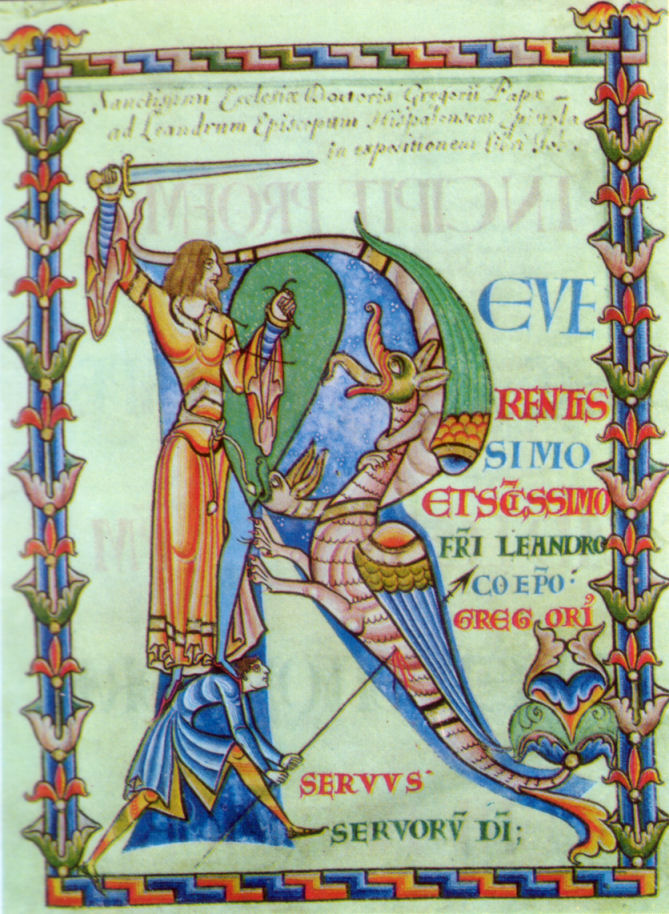 Sanctissimi Ecclesiæ Doctoris Gregorii Papæ
ad Leandrum Episcopum Hispalensem Epistola
in expositionem libri Iob.
R
EVE
RENTIS
SIMO
ET SC̄ISSIMO
FR̄I LEANDRO
COEP̄O·
GREGORI᾿
SERVVS·
SERVORV̄ DĪ;